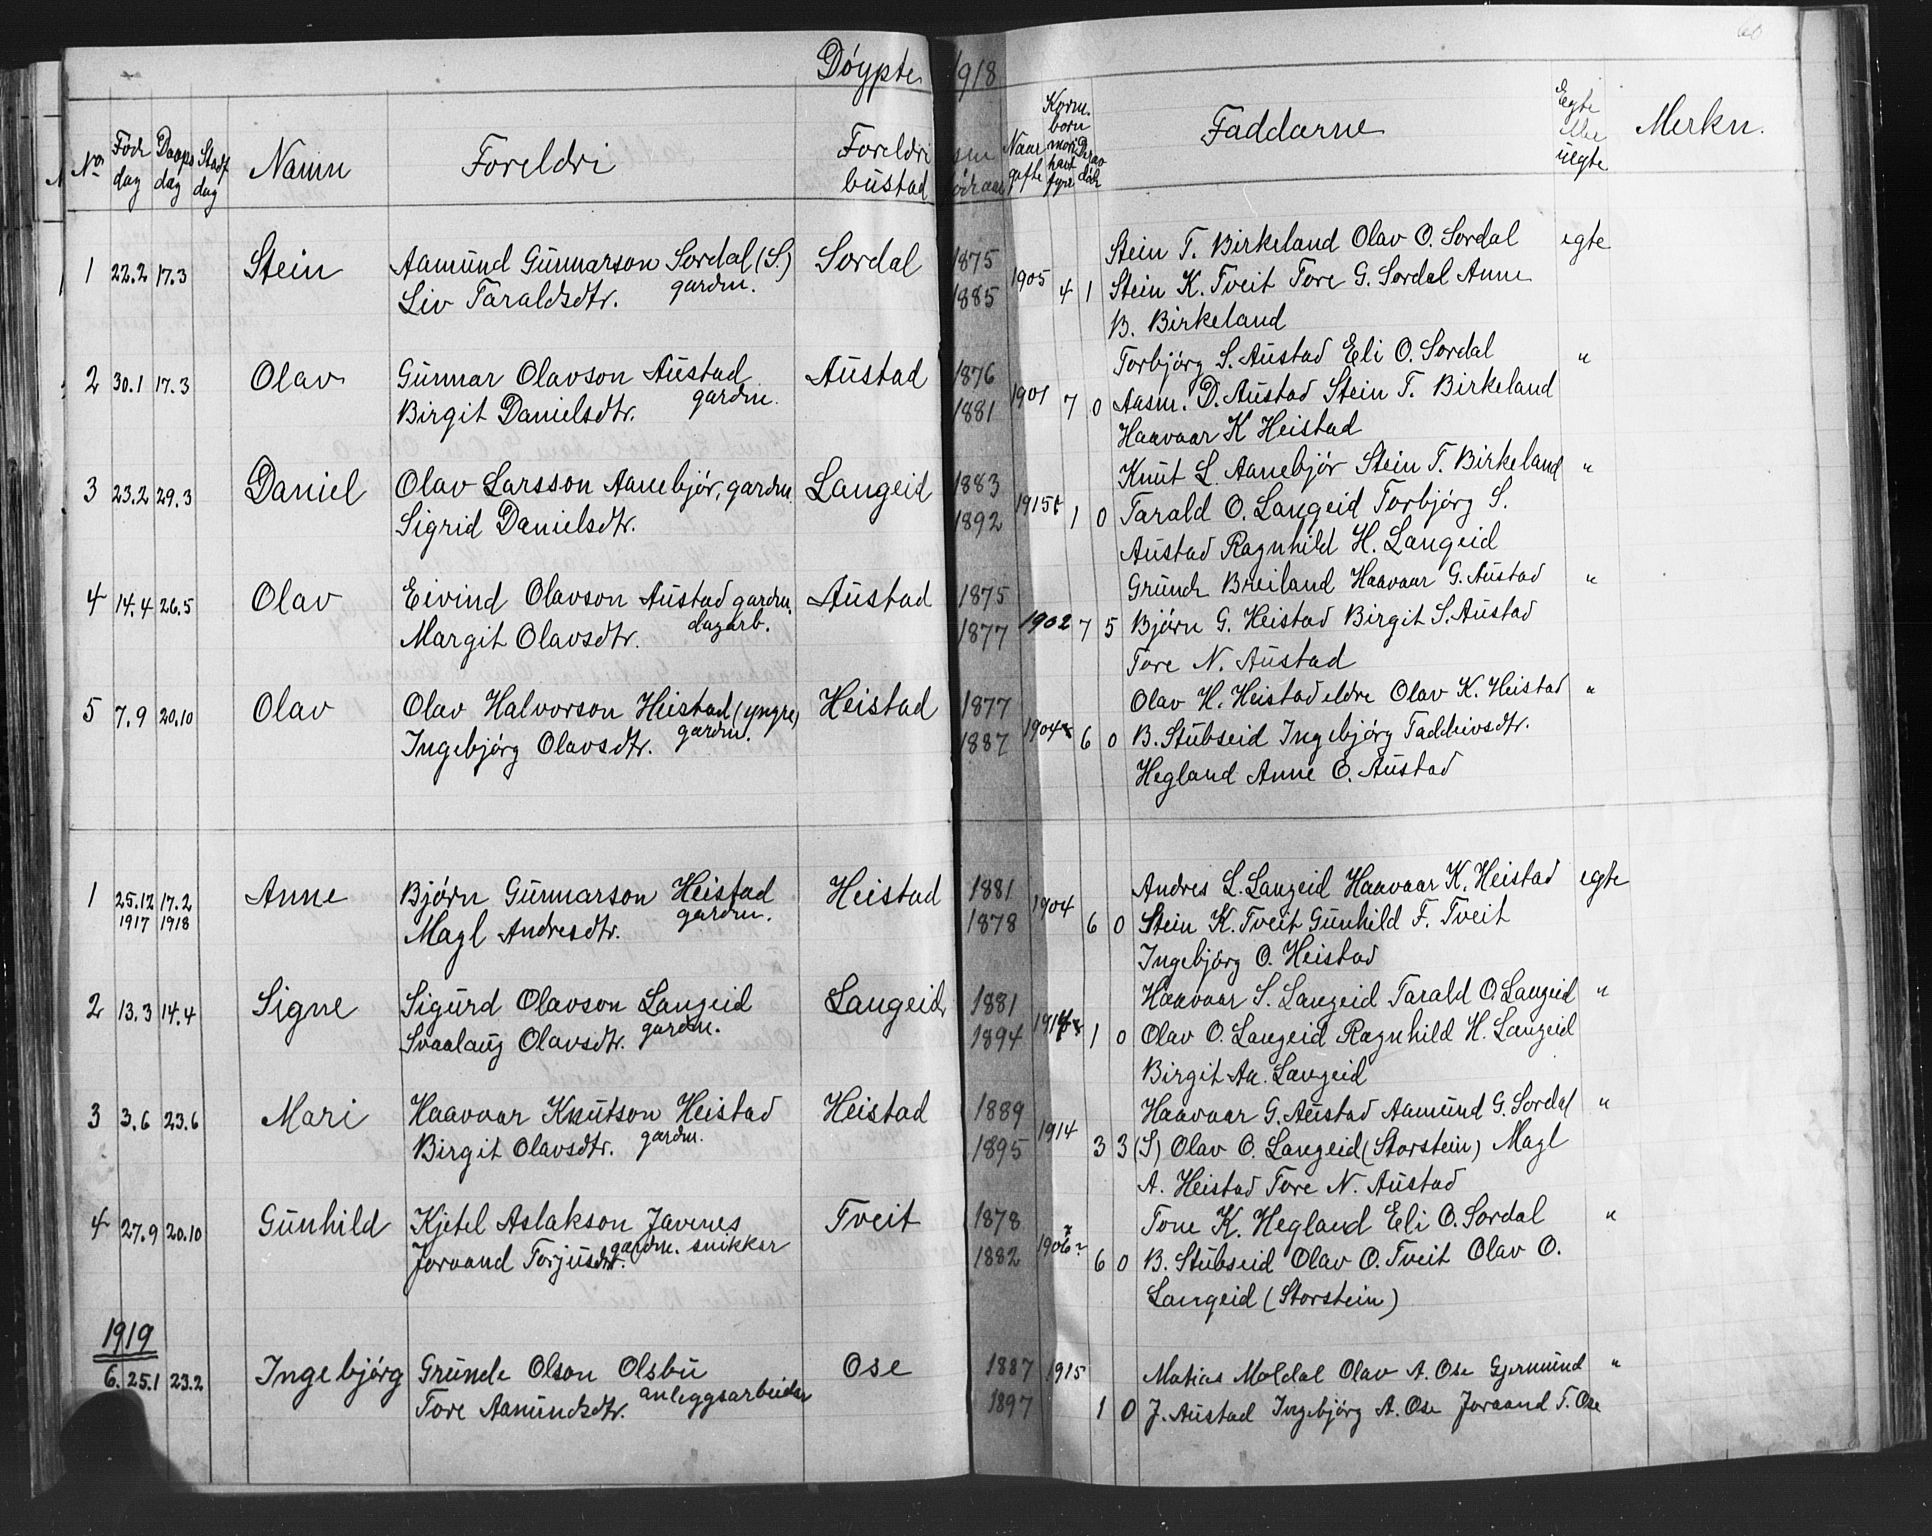 60
Døypte 1918
No Fødedag Daapsdag Stadf dag Namn Foreldri Foreldri bustad Naar gifte Korm. born mori havt fyre Derav død Faddarne Egte eller uegte Merkn.
1 22.2 17.3 Stein Aamund Gunnarson Sordal (S.) gardm. Sordal 1875 1905 4 1 Stein T. Birkeland Olav O. Sordal egte
Liv Taraldsdtr. 1885 Stein K. Tveit Tore G. Sordal Anne
B. Birkeland
2 30.1 17.3 Olav Gunnar Olavson Austad gardm. Austad 1876 1901 7 0 Torbjørg S. Austad Eli O. Sordal "
Birgit Danielsdtr. 1881 Aasm. D. Austad Stein T. Birkeland
Haavaar K Heistad
3 23.2 29.3 Daniel Olav Larsson Aanebjør, gardm. Langeid 1883 1915 1 0 Knut L. Aanebjør Stein T. Birkeland "
Sigrid Danielsdtr. 1892 Tarald O. Langeid Torbjørg S.
Austad Ragnhild H. Langeid
4 14.4 26.5 Olav Eivind Olavson Austad gardm. dagarb. Austad 1875 1902 7 5 Grunde Breiland Haavaar G. Austad "
Margit Olavsdtr. 1877 Bjørn G. Heistad Birgit S. Austad
Tore N. Austad
5 7.9 20.10 Olav Olav Halvorson Heistad (yngre) gardm. Heistad 1877 1904 6 0 Olav H. Heistad eldre Olav K. Heistad "
Ingebjørg Olavsdtr. 1887 B. Stubseid Ingebjørg Taddeivsdtr.
Hegland Anne O. Austad
1 25.12 1917 17.2 1918 Anne Bjørn Gunnarson Heistad gardm. Heistad 1881 1904 6 0 Andres L. Langeid Haavaar K. Heistad egte
Magl Andresdtr. 1878 Stein K. Tveit Gunhild F. Tveit
Ingebjørg O. Heistad
2 13.3 14.4 Signe Sigurd Olavson Langeid gardm. Langeid 1881 1 0 Haavaar S. Langeid Tarald O. Langeid "
Svaalaug Olavsdtr. 1894 Olav O. Langeid Ragnhild H. Langeid
Birgit Aa. Langeid
3 3.6 23.6 Mari Haavaar Knutson Heistad gardm. Heistad 1889 1914 3 3 Haavaar G. Austad Aamund G. Sordal "
Birgit Olavsdtr. 1895 (S) Olav O. Langeid (Storstein) Magl
A. Heistad Tore N. Austad
4 27.9 20.10 Gunhild Kjetel Aslakson Javenes gardm. snikkar Tveit 1878 6 0 Tone K. Hegland Eli O. Sordal "
Joraand Torjusdtr. 1882 B. Stubseid Olav O. Tveit Olav O.
Langeid (Storstein)
1919
6. 25.1 23.2 Ingebjørg Grunde Olson Olsbu anleggsarbeidar Ose 1887 1915 1 0 Matias Moldal Olav A. Ose Gjermund "
Tore Aamundsdtr. 1897 J. Austad Ingebjørg A. Ose Joraand T. Ose